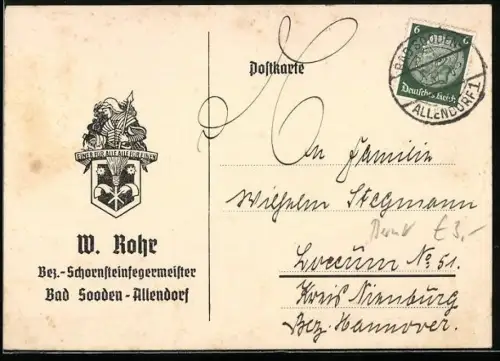 Postkarte
6 6
Deutsches Reich
BAD SOODEN-
ALLENDORF 1
EINER FÜR ALLE ALLE FÜR EINEN
W. Rohr
Bez.-Schornsteinfegermeister
Bad Sooden-Allendorf
An Familie
Wilhelm Stegmann
€ 3,-
Loccum No 51.
Kreis Nienburg
Bez. Hannover.